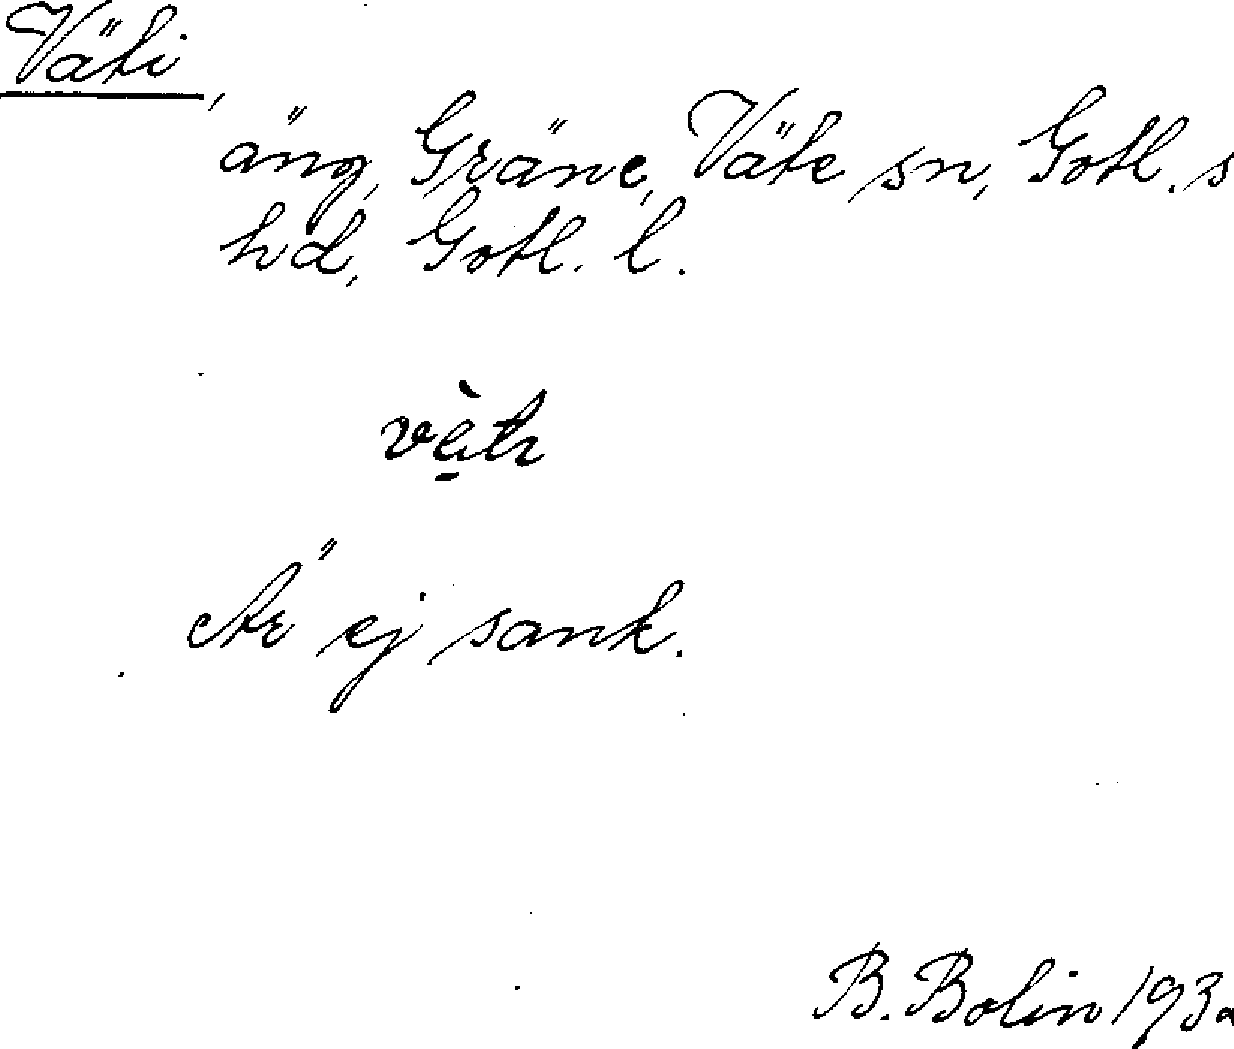 Väti,
äng, Gräne, Väte sn, Gotl. s
hd, Gotl. l.
Är ej sank.
B. Bolin